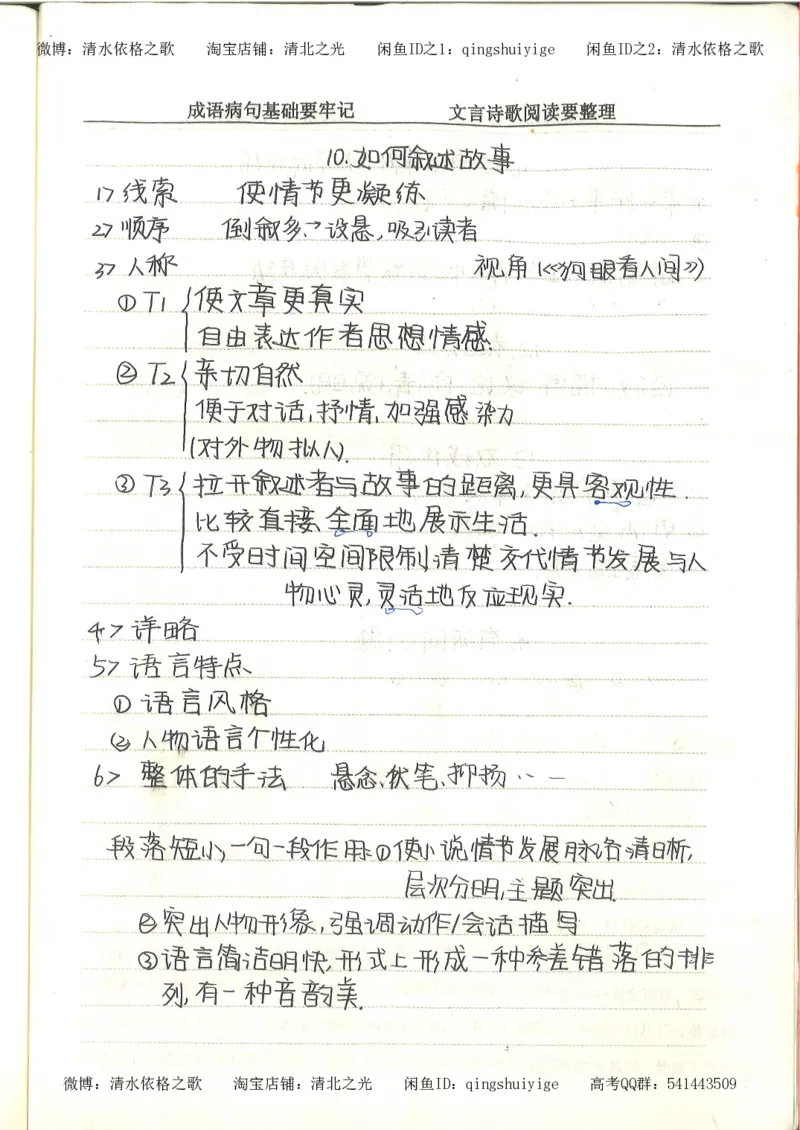 微博：清水依格之歌 淘宝店铺：清北之光 闲鱼ID之1：qingshuiyige 闲鱼ID之2：清水依格之歌
成语病句基础要牢记 文言诗歌阅读要整理
10.如何叙述故事
1> 线索 使情节更凝练
2> 顺序 倒叙多→设悬,吸引读者
3> 人称 视角(《狗眼看人间》)
① T1 使文章更真实
自由表达作者思想情感.
② T2 亲切自然
便于对话,抒情,加强感染力
(对外物拟人).
③ T3 拉开叙述者与故事的距离,更具客观性.
比较直接、全面地展示生活.
不受时间空间限制,清楚交代情节发展与人
物心灵,灵活地反应现实.
4> 详略
5> 语言特点
① 语言风格
② 人物语言个性化
6> 整体的手法 悬念、伏笔、抑扬……
段落短小,一句一段作用:①使小说情节发展脉络清晰,
层次分明,主题突出
②突出人物形象,强调动作/会话描写
③语言简洁明快,形式上形成一种参差错落的排
列,有一种音韵美.
微博：清水依格之歌 淘宝店铺：清北之光 闲鱼ID：qingshuiyige 高考QQ群：541443509